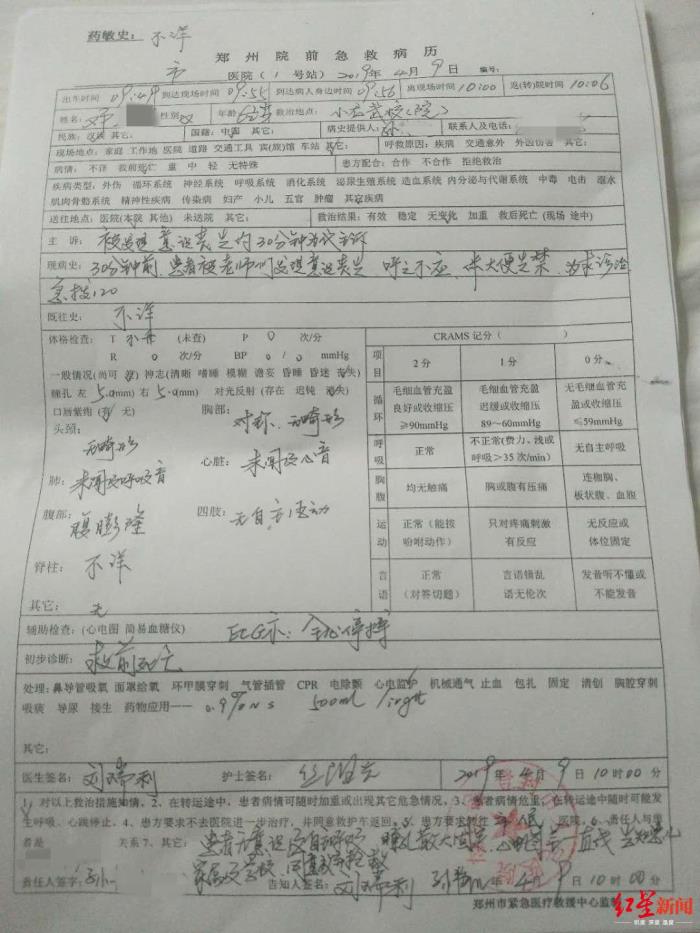 药敏史: 不详
郑州院前急救病历
市 医院(1号站) 2019年4月9日 编号:
出车时间 09:49 到达现场时间 09:55 到达病人身边时间 09:56 离现场时间 10:00 返(转)院时间 10:06
姓名: 性别 女 年龄 救治地点: 小龙武校(院)
民族: 汉族 其它: 国籍: 中国 其它: 病史提供人: 联系人及电话:
现场地点: 家庭 工作地 医院 道路 交通工具 宾(旅)馆 车站 其它: 呼救原因: 疾病 交通意外 外因伤害 其它:
病情: 不详 救前死亡 重 中 轻 无特殊 患方配合: 合作 不合作 拒绝救治
疾病类型: 外伤 循环系统 神经系统 呼吸系统 消化系统 泌尿生殖系统 造血系统 内分泌与代谢系统 中毒 电击 溺水
肌肉骨骼系统 精神性疾病 传染病 妇产 小儿 五官 肿瘤 其它疾病
送往地点: 医院(本院 其他) 未送院 其它: 救治结果: 有效 稳定 无变化 加重 救后死亡 (现场 途中)
主诉: 被发现意识丧失约30分钟为代主诉
现病史: 30分钟前,患者被老师们发现意识丧失 呼之不应,伴大便失禁,为求诊治
急拨120
既往史: 不详
体格检查: T 不升 (未查) P 0 次/分
R 0 次/分 BP 0/0 mmHg
一般情况(尚可 差) 神志(清晰 嗜睡 模糊 谵妄 昏睡 昏迷 丧失)
瞳孔 左 5.0(mm) 右 5.0(mm) 对光反射 (存在 迟钝 消失)
口唇紫绀 (有 无)
头颈: 无畸形
胸部: 对称、无畸形
肺: 未闻及呼吸音
心脏: 未闻及心音
腹部: 腹膨隆
四肢: 无自主运动
脊柱: 不详
其它: 无
CRAMS 记分( )
项目 2分 1分 0分
循环 毛细血管充盈良好或收缩压≥90mmHg 毛细血管充盈迟缓或收缩压89~60mmHg 无毛细血管充盈或收缩压≤59mmHg
呼吸 正常 不正常(费力、浅或呼吸>35次/min) 无自主呼吸
胸腹 均无触痛 胸或腹有压痛 连枷胸、板状腹、血腹
运动 正常(能按吩咐动作) 只对疼痛刺激有反应 无反应或体位固定
言语 正常(对答切题) 言语错乱语无伦次 发音听不懂或不能发音
辅助检查: (心电图 简易血糖仪) ECG示: 全心停搏
初步诊断: 救前死亡
处理: 鼻导管吸氧 面罩给氧 环甲膜穿刺 气管插管 CPR 电除颤 心电监护 机械通气 止血 包扎 固定 清创 胸腔穿刺
吸痰 导尿 接生 药物应用—— 0.9% NS 500ml ivgtt
其它:
医生签名: 护士签名: 2019年4月9日10时00分
1、对以上救治措施知情。2、在转运途中,患者病情可随时加重或出现其它危急情况。3、患者病情危重,在转运途中随时可能发
生呼吸、心跳停止。4、患方要求不去医院进一步治疗,并同意救护车返回。5、患方要求转往 医院。6、责任人与患
者是 关系7、其它: 患者无意识及自主呼吸
责任人签字: 告知人签名: 年4月9日10时00分
郑州市紧急医疗救援中心监制
红星新闻